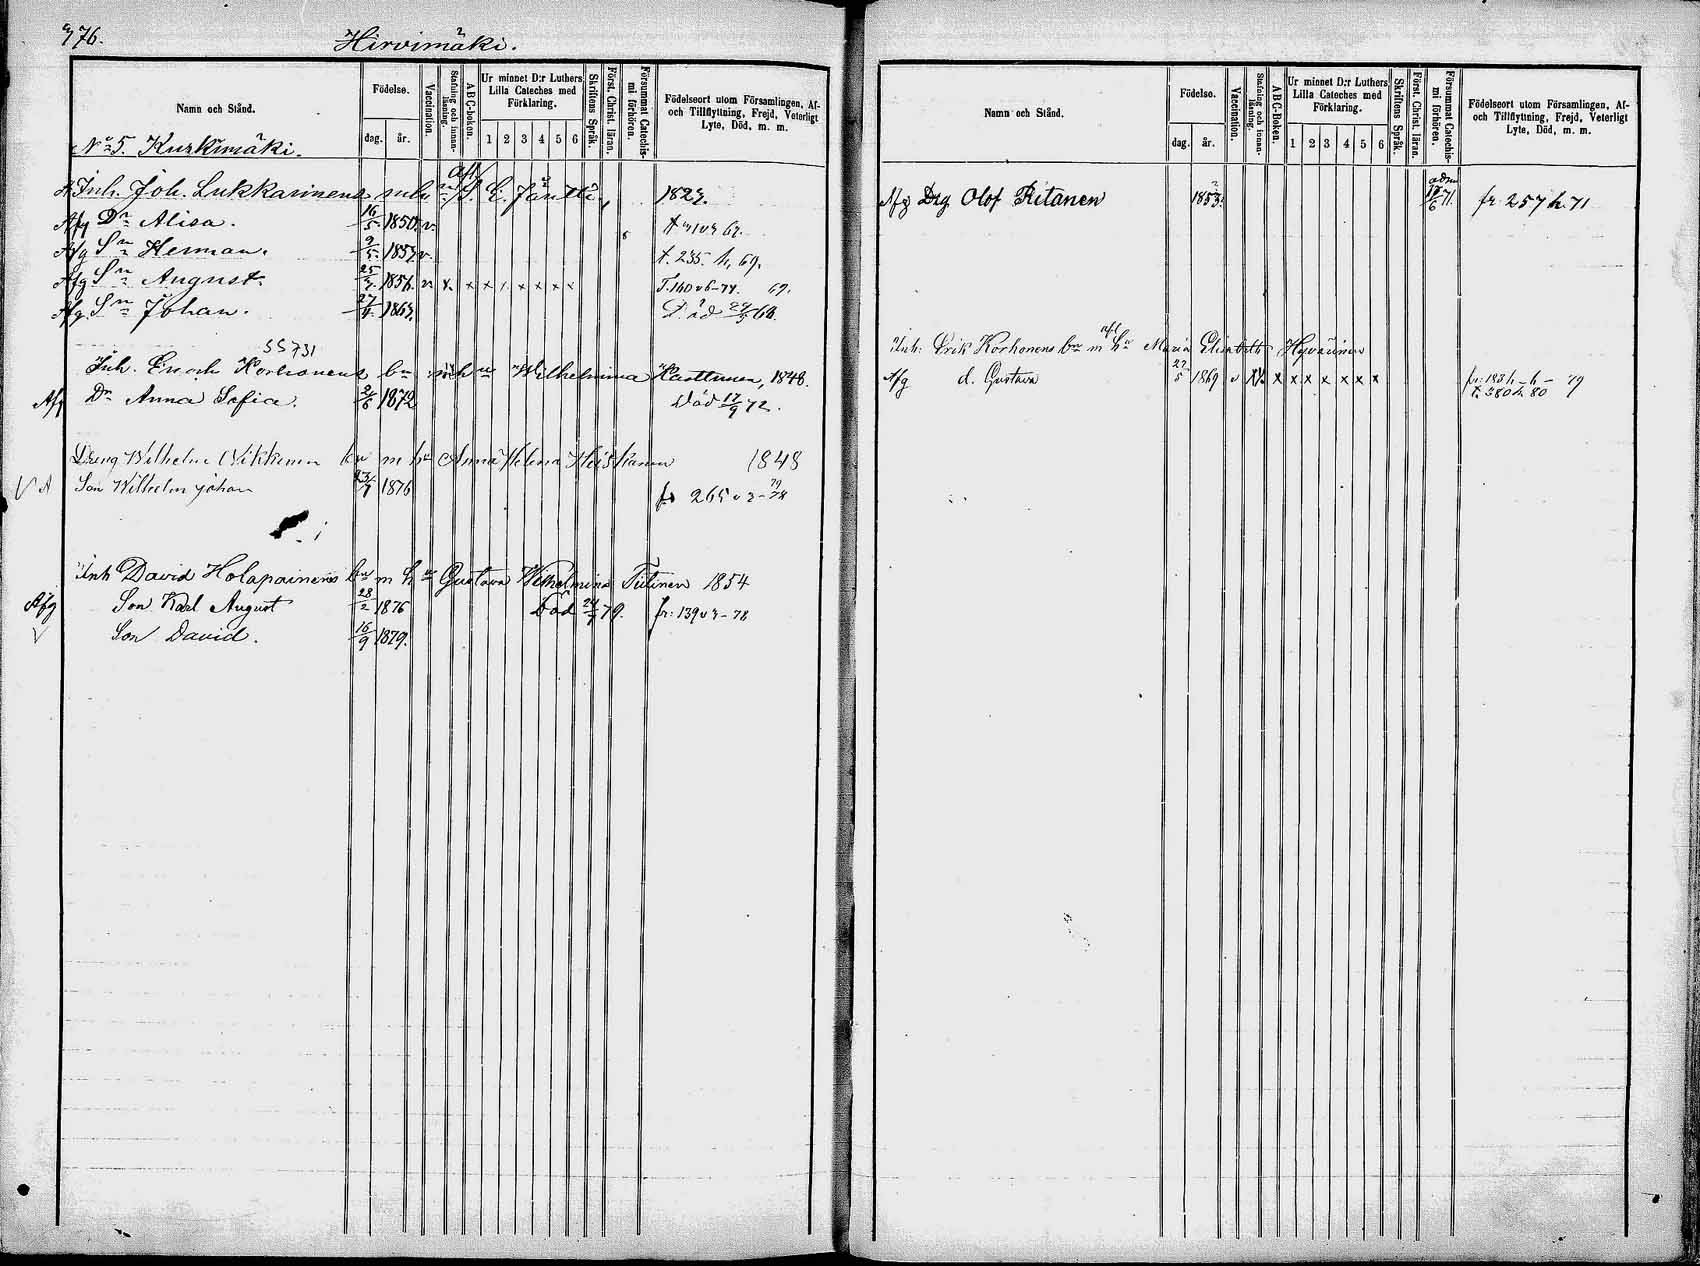 976.
Hirvimäki.
Namn och Stånd.
Födelse.
dag. år.
Vaccination.
Stafning och innanläsning.
A B C-boken.
Ur minnet D:r Luthers Lilla Cateches med Förklaring.
1 2 3 4 5 6
Skriftens Språk.
Först. Christ. läran.
Försummat Catechismi förhören.
Födelseort utom Församlingen, Af- och Tillflyttning, Frejd, Veterligt Lyte, Död, m. m.
No 5. Kurkimäki.
Inh. Joh. Lukkarinens Jäntti, 1827.
Afg Dr Alisa. 16/5 1850 v.
Afg Sn Herman. 9/5 v. t. 235. h, 69.
Afg Sn August. 25/ 1856. v x x x x x x x 69.
Afg. Sn Johan. 27/ Död 68.
55731
Inh. Enoch Korhonens bn m hu Wilhelmina Karttunen, 1848.
Afg Dr Anna Sofia. 2/6 1872 Död 17/9 72.
Dreng Wilhelm Wikkman bn m hu Anna Helena Heiskanen 1848
Son Wilhelm Johan 23/7 1876 fr 265 v 2-78
Inh David Holapainens bn m hu Gustava Wilhelmina Tiitinen 1854
Afg Son Karl August 28/2 1876 Död 24/7 79. fr: 139 v 3-78
Son David. 16/9 1879.
Namn och Stånd.
Födelse.
dag. år.
Vaccination.
Stafning och innanläsning.
A B C-Boken.
Ur minnet D:r Luthers Lilla Cateches med Förklaring.
1 2 3 4 5 6
Skriftens Språk.
Först. Christ. läran.
Försummat Catechismi förhören.
Födelseort utom Församlingen, Af- och Tillflyttning, Frejd, Veterligt Lyte, Död, m. m.
Afg Drg Olof Ritanen 1853. 71. fr. 257 h. 71
Inh: Erik Korhonens bn m afl hu Maria Elisabeth Hyvärinen
Afg d. Gustava 27/5 1869 v x x x x x x x fr: 183 h - h - 79
t. 380 h. 80